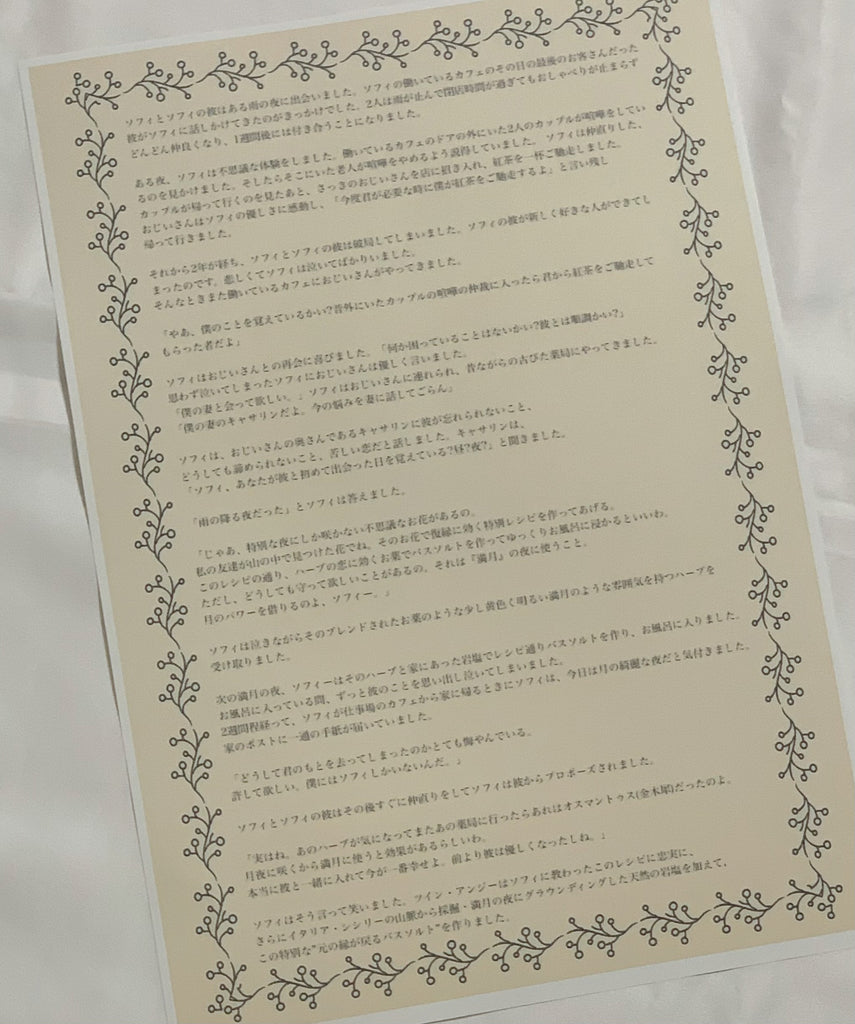 ソフィとソフィの彼はある雨の夜に出会いました。ソフィの働いているカフェのその日の最後のお客さんだった
彼がソフィに話しかけてきたのがきっかけでした。2人は雨が止んで閉店時間が過ぎてもおしゃべりが止まらず
どんどん仲良くなり、1週間後には付き合うことになりました。
ある夜、ソフィは不思議な体験をしました。働いているカフェのドアの外にいた2人のカップルが喧嘩をしてい
るのを見かけました。そしたらそこにいた老人が喧嘩をやめるよう説得していました。 ソフィは仲直りした、
カップルが帰って行くのを見たあと、さっきのおじいさんを店に招き入れ、紅茶を一杯ご馳走しました。
おじいさんはソフィの優しさに感動し、「今度君が必要な時に僕が紅茶をご馳走するよ」と言い残し
帰って行きました。
それから2年が経ち、ソフィとソフィの彼は破局してしまいました。ソフィの彼が新しく好きな人ができてし
まったのです。悲しくてソフィは泣いてばかりいました。
そんなときまた働いているカフェにおじいさんがやってきました。
「やあ、僕のことを覚えているかい?昔外にいたカップルの喧嘩の仲裁に入ったら君から紅茶をご馳走して
もらった者だよ」
ソフィはおじいさんとの再会に喜びました。「何か困っていることはないかい?彼とは順調かい?」
思わず泣いてしまったソフィにおじいさんは優しく言いました。
「僕の妻と会って欲しい。」ソフィはおじいさんに連れられ、昔ながらの古びた薬局にやってきました。
「僕の妻のキャサリンだよ。今の悩みを妻に話してごらん」
ソフィは、おじいさんの奥さんであるキャサリンに彼が忘れられないこと、
どうしても諦められないこと、苦しい恋だと話しました。キャサリンは、
「ソフィ、あなたが彼と初めて出会った日を覚えている?昼?夜?」と聞きました。
「雨の降る夜だった」とソフィは答えました。
「じゃあ、特別な夜にしか咲かない不思議なお花があるの。
私の友達が山の中で見つけた花でね。そのお花で復縁に効く特別レシピを作ってあげる。
このレシピの通り、ハーブの恋に効くお薬でバスソルトを作ってゆっくりお風呂に浸かるといいわ。
ただし、どうしても守って欲しいことがあるの。それは『満月』の夜に使うこと。
月のパワーを借りるのよ、ソフィー。」
ソフィは泣きながらそのブレンドされたお薬のような少し黄色く明るい満月のような雰囲気を持つハーブを
受け取りました。
次の満月の夜、ソフィーはそのハーブと家にあった岩塩でレシピ通りバスソルトを作り、お風呂に入りました。
お風呂に入っている間、ずっと彼のことを思い出し泣いてしまいました。
2週間程経って、ソフィが仕事場のカフェから家に帰るときにソフィは、今日は月の綺麗な夜だと気付きました。
家のポストに一通の手紙が届いていました。
「どうして君のもとを去ってしまったのかとても悔やんでいる。
許して欲しい。僕にはソフィしかいないんだ。」
ソフィとソフィの彼はその後すぐに仲直りをしてソフィは彼からプロポーズされました。
「実はね。あのハーブが気になってまたあの薬局に行ったらあれはオスマントゥス(金木犀)だったのよ。
月夜に咲くから満月に使うと効果があるらしいわ。
本当に彼と一緒に入れて今が一番幸せよ。前より彼は優しくなったしね。」
ソフィはそう言って笑いました。ツイン・アンジーはソフィに教わったこのレシピに忠実に、
さらにイタリア・シシリーの山脈から採掘・満月の夜にグラウンディングした天然の岩塩を加えて、
この特別な"元の縁が戻るバスソルト"を作りました。